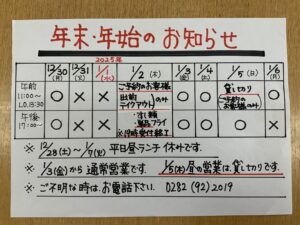 年末・年始のお知らせ
2025年
12/30(月) 12/31(火) 1/1(水) 1/2(木) 1/3(金) 1/4(土) 1/5(日) 1/6(月)
午前 11:00〜 L.O.13:30
○ × × ご予約のお客様 出前 テイクアウトのみ ○ ○ 貸し切り ご予約のお客様のみ ○
午後 17:00〜
○ × × ※19時受付終了 ○ ○ ○ ○
※12/28(土)〜1/7(火) 平日昼ランチ休みです。
※1/3(金)から通常営業です。 1/5(日)昼の営業は貸し切りです。
※ご不明な時は、お電話下さい。 0282(92)2019